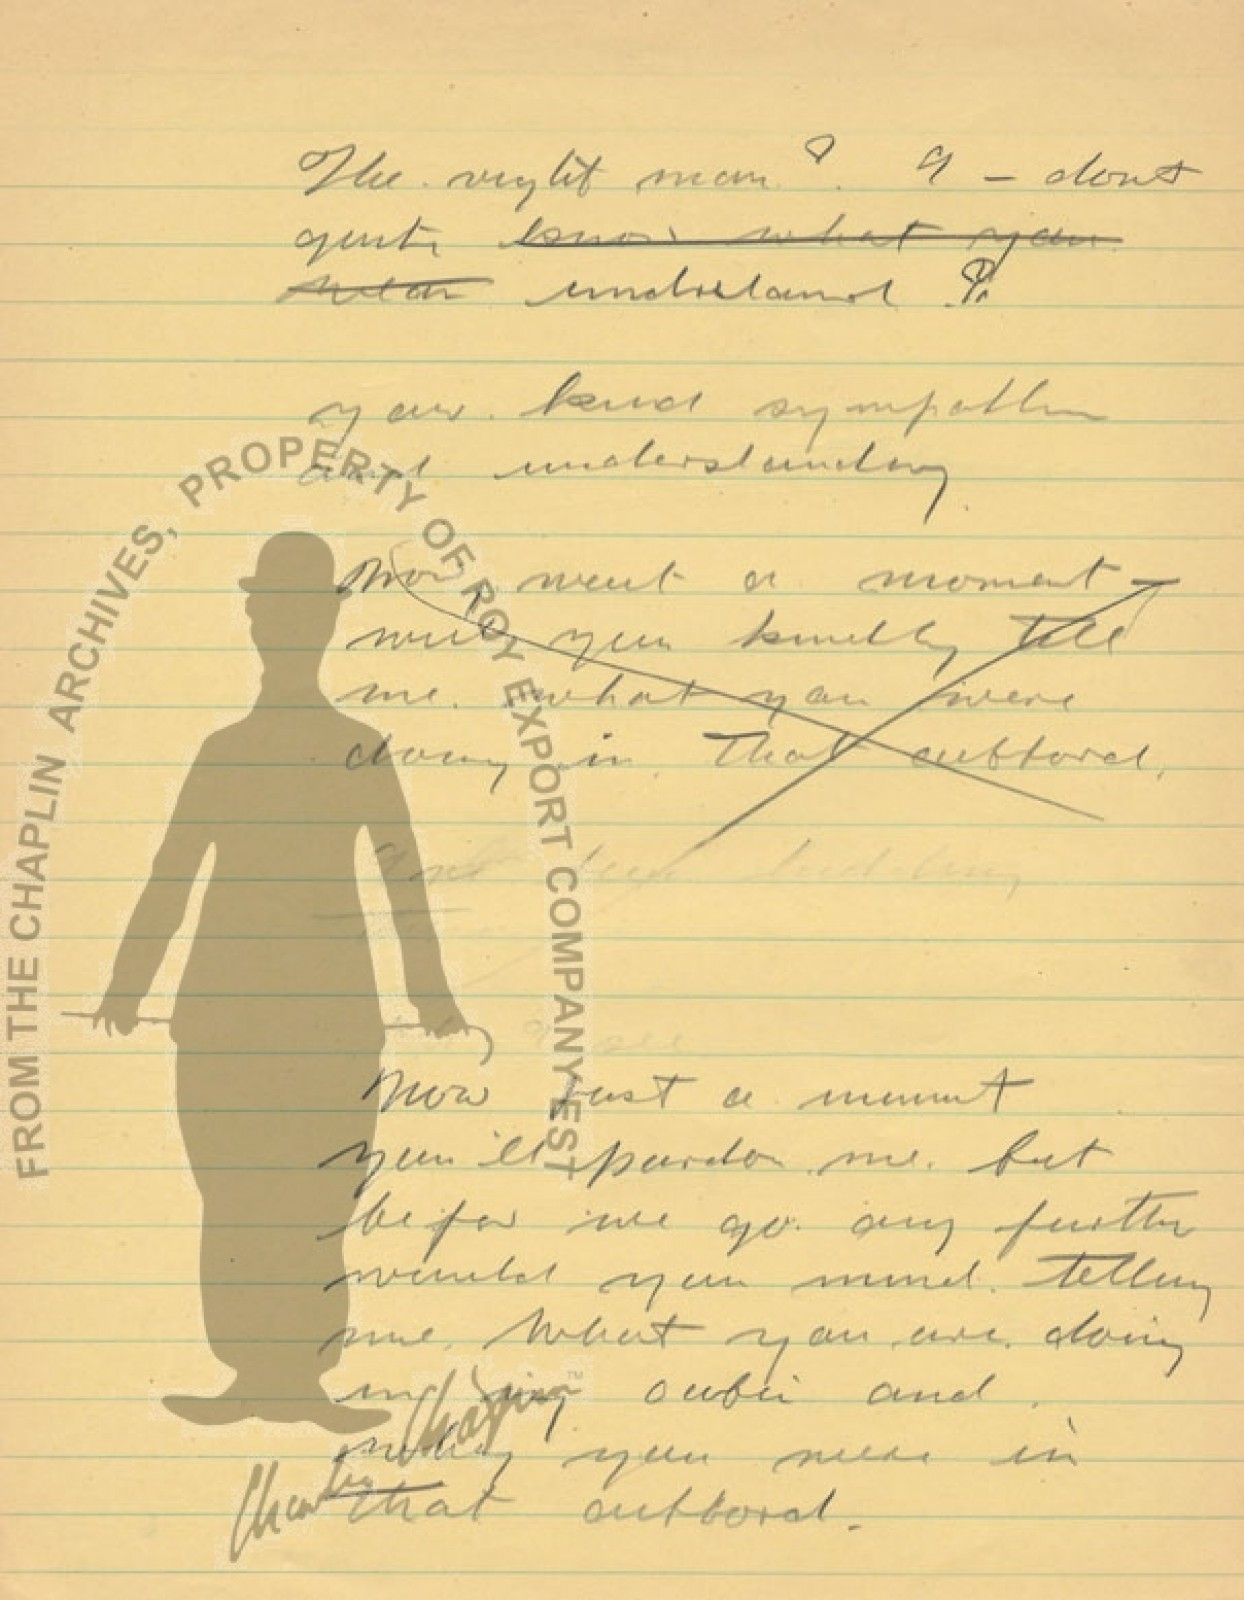 The right man? I - dont
quite know what you
mean understand ?
your kind sympathy
and understanding
Now went a moment
will you kindly tell
me. what you were
doing in that cubbord.
see
Now just a minuut
you'ell pardon me. but
befor we go any further
would you mind telling
me. What you are doing
in my cabin and
why you were in
that cubbord.
FROM THE CHAPLIN ARCHIVES, PROPERTY OF ROY EXPORT COMPANY EST
Charlie Chaplin TM